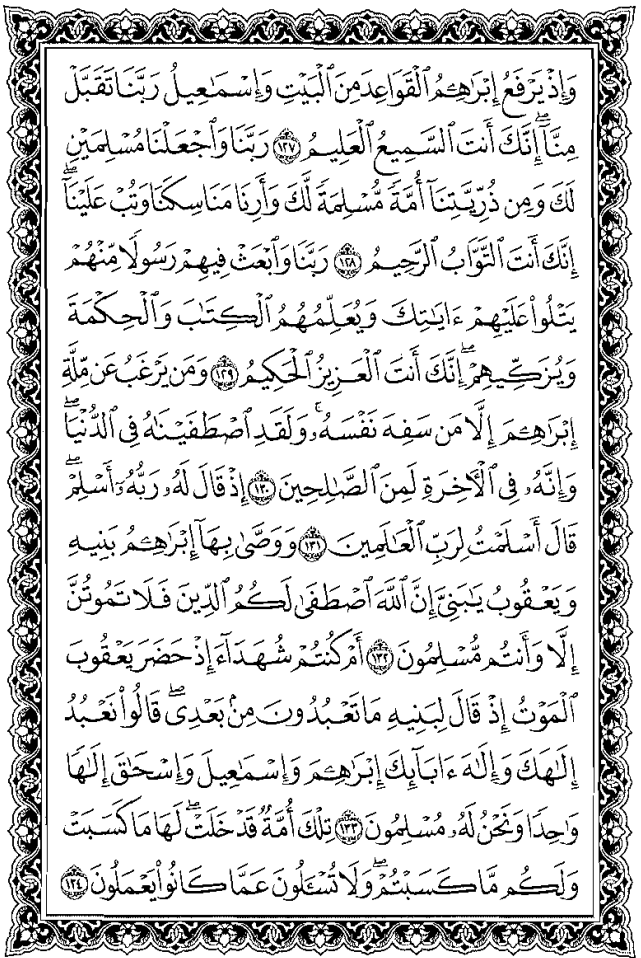 وَإِذْ يَرْفَعُ إِبْرَٰهِـۧمُ ٱلْقَوَاعِدَ مِنَ ٱلْبَيْتِ وَإِسْمَـٰعِيلُ رَبَّنَا تَقَبَّلْ
مِنَّآ ۖ إِنَّكَ أَنتَ ٱلسَّمِيعُ ٱلْعَلِيمُ ١٢٧ رَبَّنَا وَٱجْعَلْنَا مُسْلِمَيْنِ
لَكَ وَمِن ذُرِّيَّتِنَآ أُمَّةً مُّسْلِمَةً لَّكَ وَأَرِنَا مَنَاسِكَنَا وَتُبْ عَلَيْنَآ ۖ
إِنَّكَ أَنتَ ٱلتَّوَّابُ ٱلرَّحِيمُ ١٢٨ رَبَّنَا وَٱبْعَثْ فِيهِمْ رَسُولًا مِّنْهُمْ
يَتْلُوا۟ عَلَيْهِمْ ءَايَـٰتِكَ وَيُعَلِّمُهُمُ ٱلْكِتَـٰبَ وَٱلْحِكْمَةَ
وَيُزَكِّيهِمْ ۖ إِنَّكَ أَنتَ ٱلْعَزِيزُ ٱلْحَكِيمُ ١٢٩ وَمَن يَرْغَبُ عَن مِّلَّةِ
إِبْرَٰهِـۧمَ إِلَّا مَن سَفِهَ نَفْسَهُۥ ۚ وَلَقَدِ ٱصْطَفَيْنَـٰهُ فِى ٱلدُّنْيَا ۖ
وَإِنَّهُۥ فِى ٱلْـَٔاخِرَةِ لَمِنَ ٱلصَّـٰلِحِينَ ١٣٠ إِذْ قَالَ لَهُۥ رَبُّهُۥٓ أَسْلِمْ ۖ
قَالَ أَسْلَمْتُ لِرَبِّ ٱلْعَـٰلَمِينَ ١٣١ وَوَصَّىٰ بِهَآ إِبْرَٰهِـۧمُ بَنِيهِ
وَيَعْقُوبُ يَـٰبَنِىَّ إِنَّ ٱللَّهَ ٱصْطَفَىٰ لَكُمُ ٱلدِّينَ فَلَا تَمُوتُنَّ
إِلَّا وَأَنتُم مُّسْلِمُونَ ١٣٢ أَمْ كُنتُمْ شُهَدَآءَ إِذْ حَضَرَ يَعْقُوبَ
ٱلْمَوْتُ إِذْ قَالَ لِبَنِيهِ مَا تَعْبُدُونَ مِنۢ بَعْدِى ۖ قَالُوا۟ نَعْبُدُ
إِلَـٰهَكَ وَإِلَـٰهَ ءَابَآئِكَ إِبْرَٰهِـۧمَ وَإِسْمَـٰعِيلَ وَإِسْحَـٰقَ إِلَـٰهًا
وَٰحِدًا وَنَحْنُ لَهُۥ مُسْلِمُونَ ١٣٣ تِلْكَ أُمَّةٌ قَدْ خَلَتْ ۖ لَهَا مَا كَسَبَتْ
وَلَكُم مَّا كَسَبْتُمْ ۖ وَلَا تُسْـَٔلُونَ عَمَّا كَانُوا۟ يَعْمَلُونَ ١٣٤